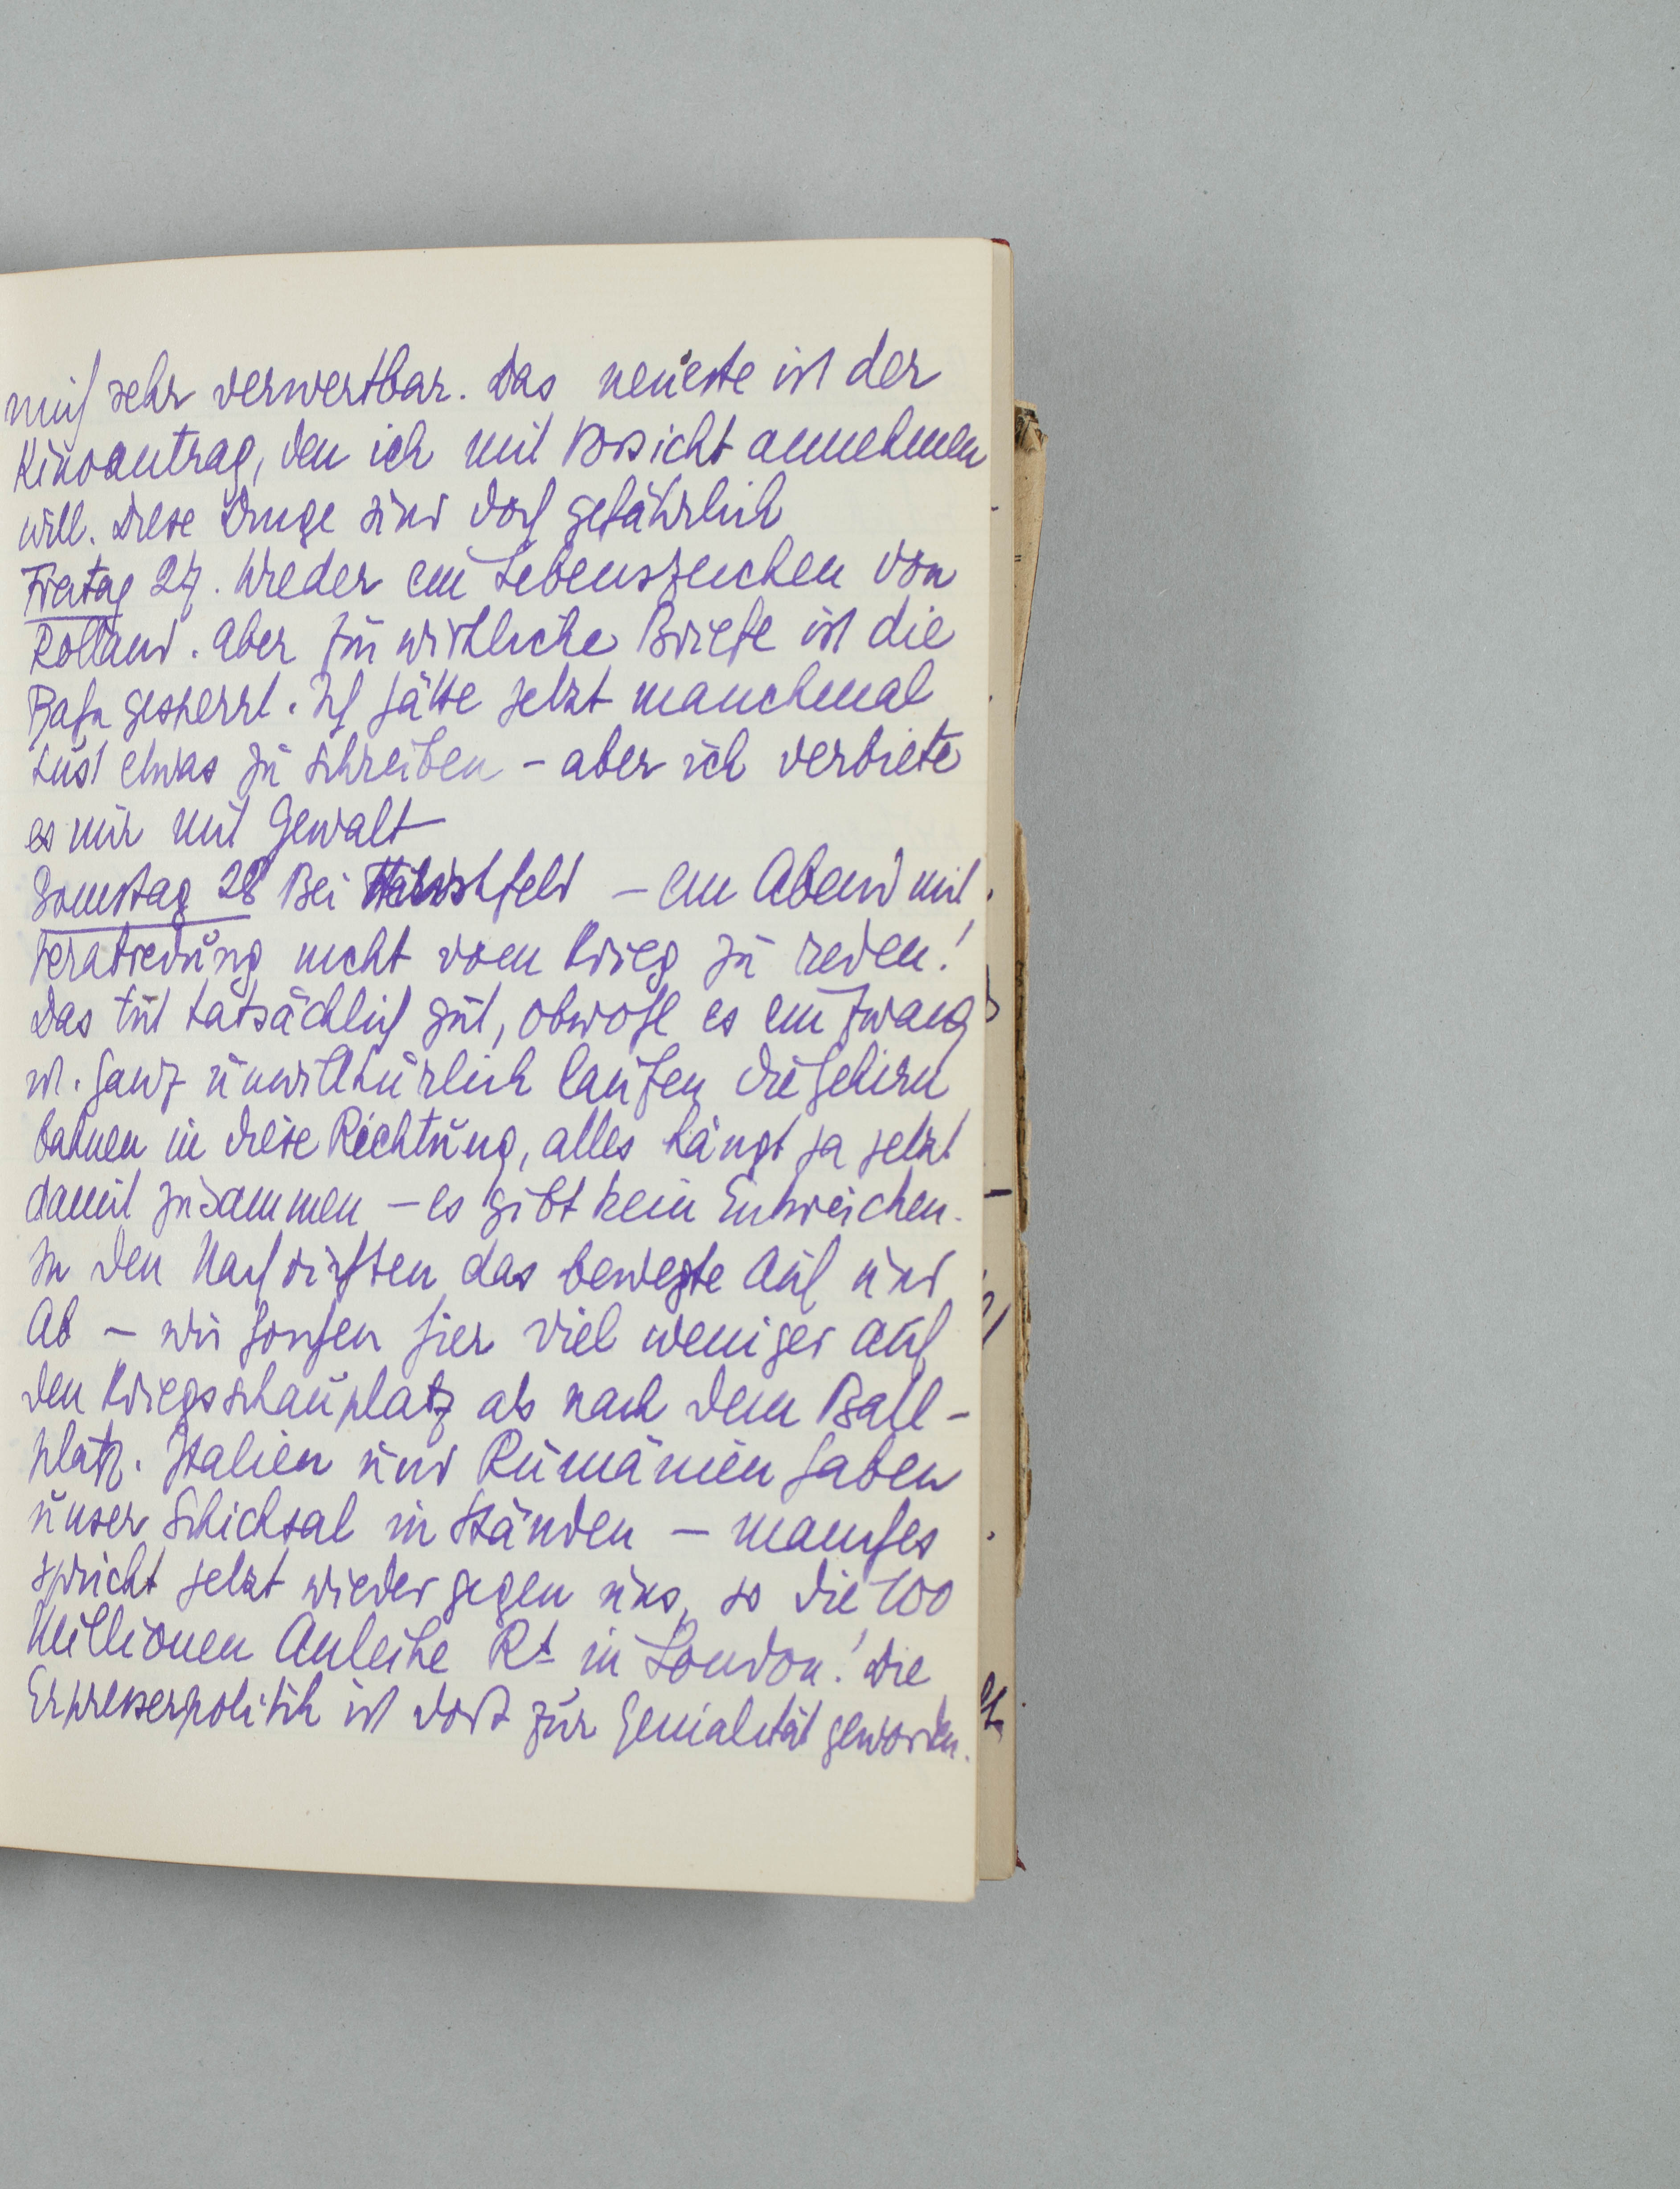 mich sehr verwertbar. Das neueste ist der
Kinoantrag, den ich mit Vorsicht annehmen
will. Diese Dinge sind doch gefährlich
Freitag 27. Wieder ein Lebenszeichen von
Rolland. Aber für wirkliche Briefe ist die
Bahn gesperrt. Ich hätte jetzt manchmal
Lust etwas zu schreiben – aber ich verbiete
es mir mit Gewalt
Samstag 28 Bei – ein Abend mit
Verabredung nicht vom Krieg zu reden!
Das tut tatsächlich gut, obwohl es ein Zwang
ist. Ganz unwillkürlich laufen die Gehirn
bahnen in diese Richtung, alles hängt ja jetzt
damit zusammen – es gibt kein Entweichen.
In den Nachrichten das bewegte Auf und
Ab – wir horchen hier viel weniger auf
den Kriegsschauplatz als nach dem Ball-
platz. Italien und Rumänien haben
unser Schicksal in Händen – manches
spricht jetzt wieder gegen uns, so die 100
Millionen Anleihe in London! Die
Erpresserpolitik ist dort zur Genialität geworden.